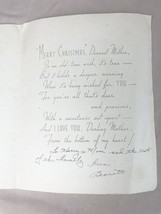 MERRY CHRISTMAS, Dearest Mother,
It's an old time wish, it's true —
But it holds a deeper meaning
When it's being wished for YOU —
For you're all that's dear
and precious,
With a sweetness set apart —
And I LOVE YOU, Darling Mother,
From the bottom of my heart.
To Mom and the rest
of the family